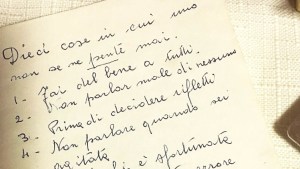 Dieci cose in cui uno
non se ne pente mai.
1 - Fai del bene a tutti.
2 - Non parlar male di nessuno
3 - Prima di decidere rifletti
4 - Non parlare quando sei
agitata
è sfortunata